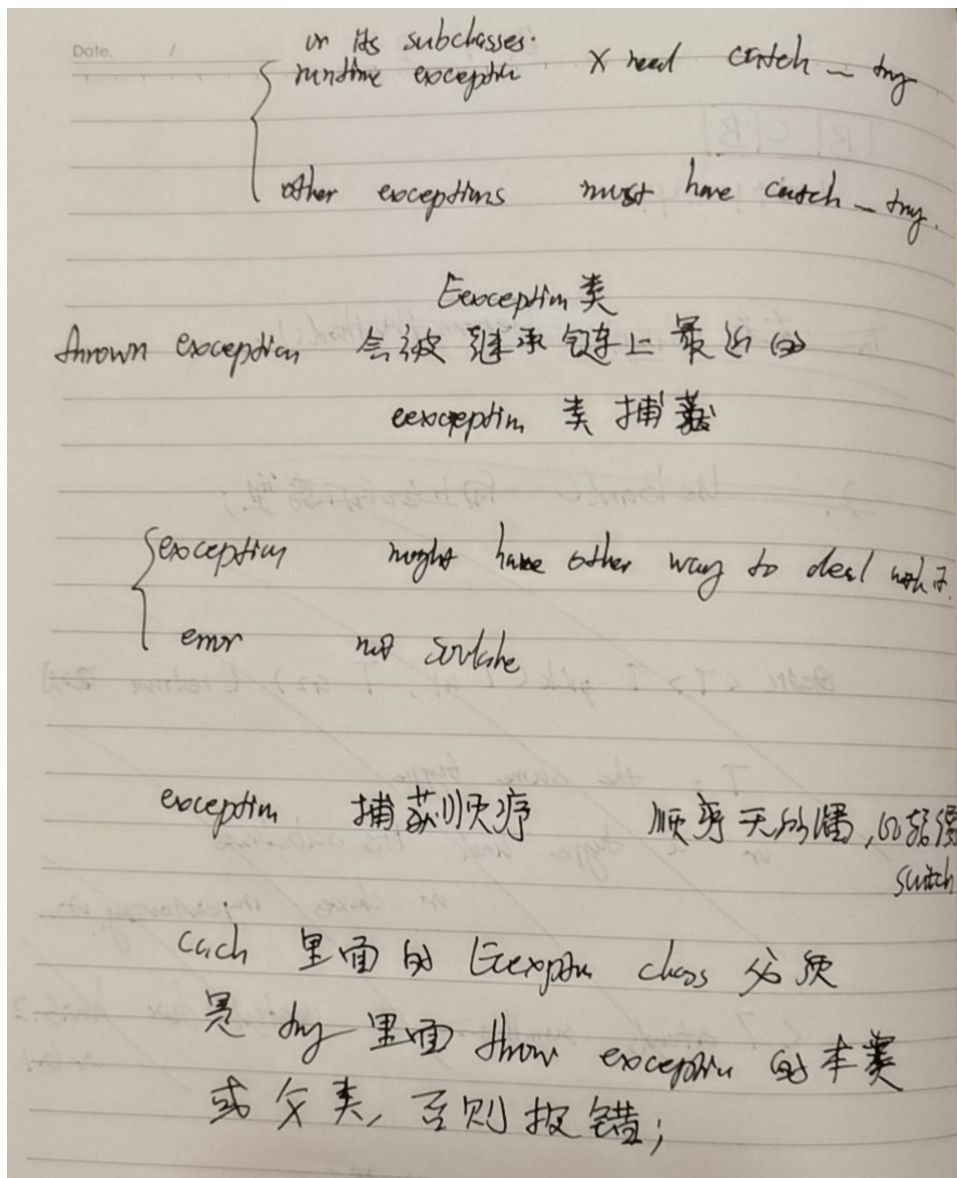 Date. /
or its subclasses.
runtime exception × need catch – try
other exceptions must have catch – try.
Eexception 类
thrown exception 会被 继承链上 最近的
eexception 类 捕获
exception might have other way to deal with it.
error not solvable
exception 捕获顺序 顺序无所谓,
switch
catch 里面的 Eexception class 必须
是 try 里面 throw exception 的本类
或父类, 否则报错;